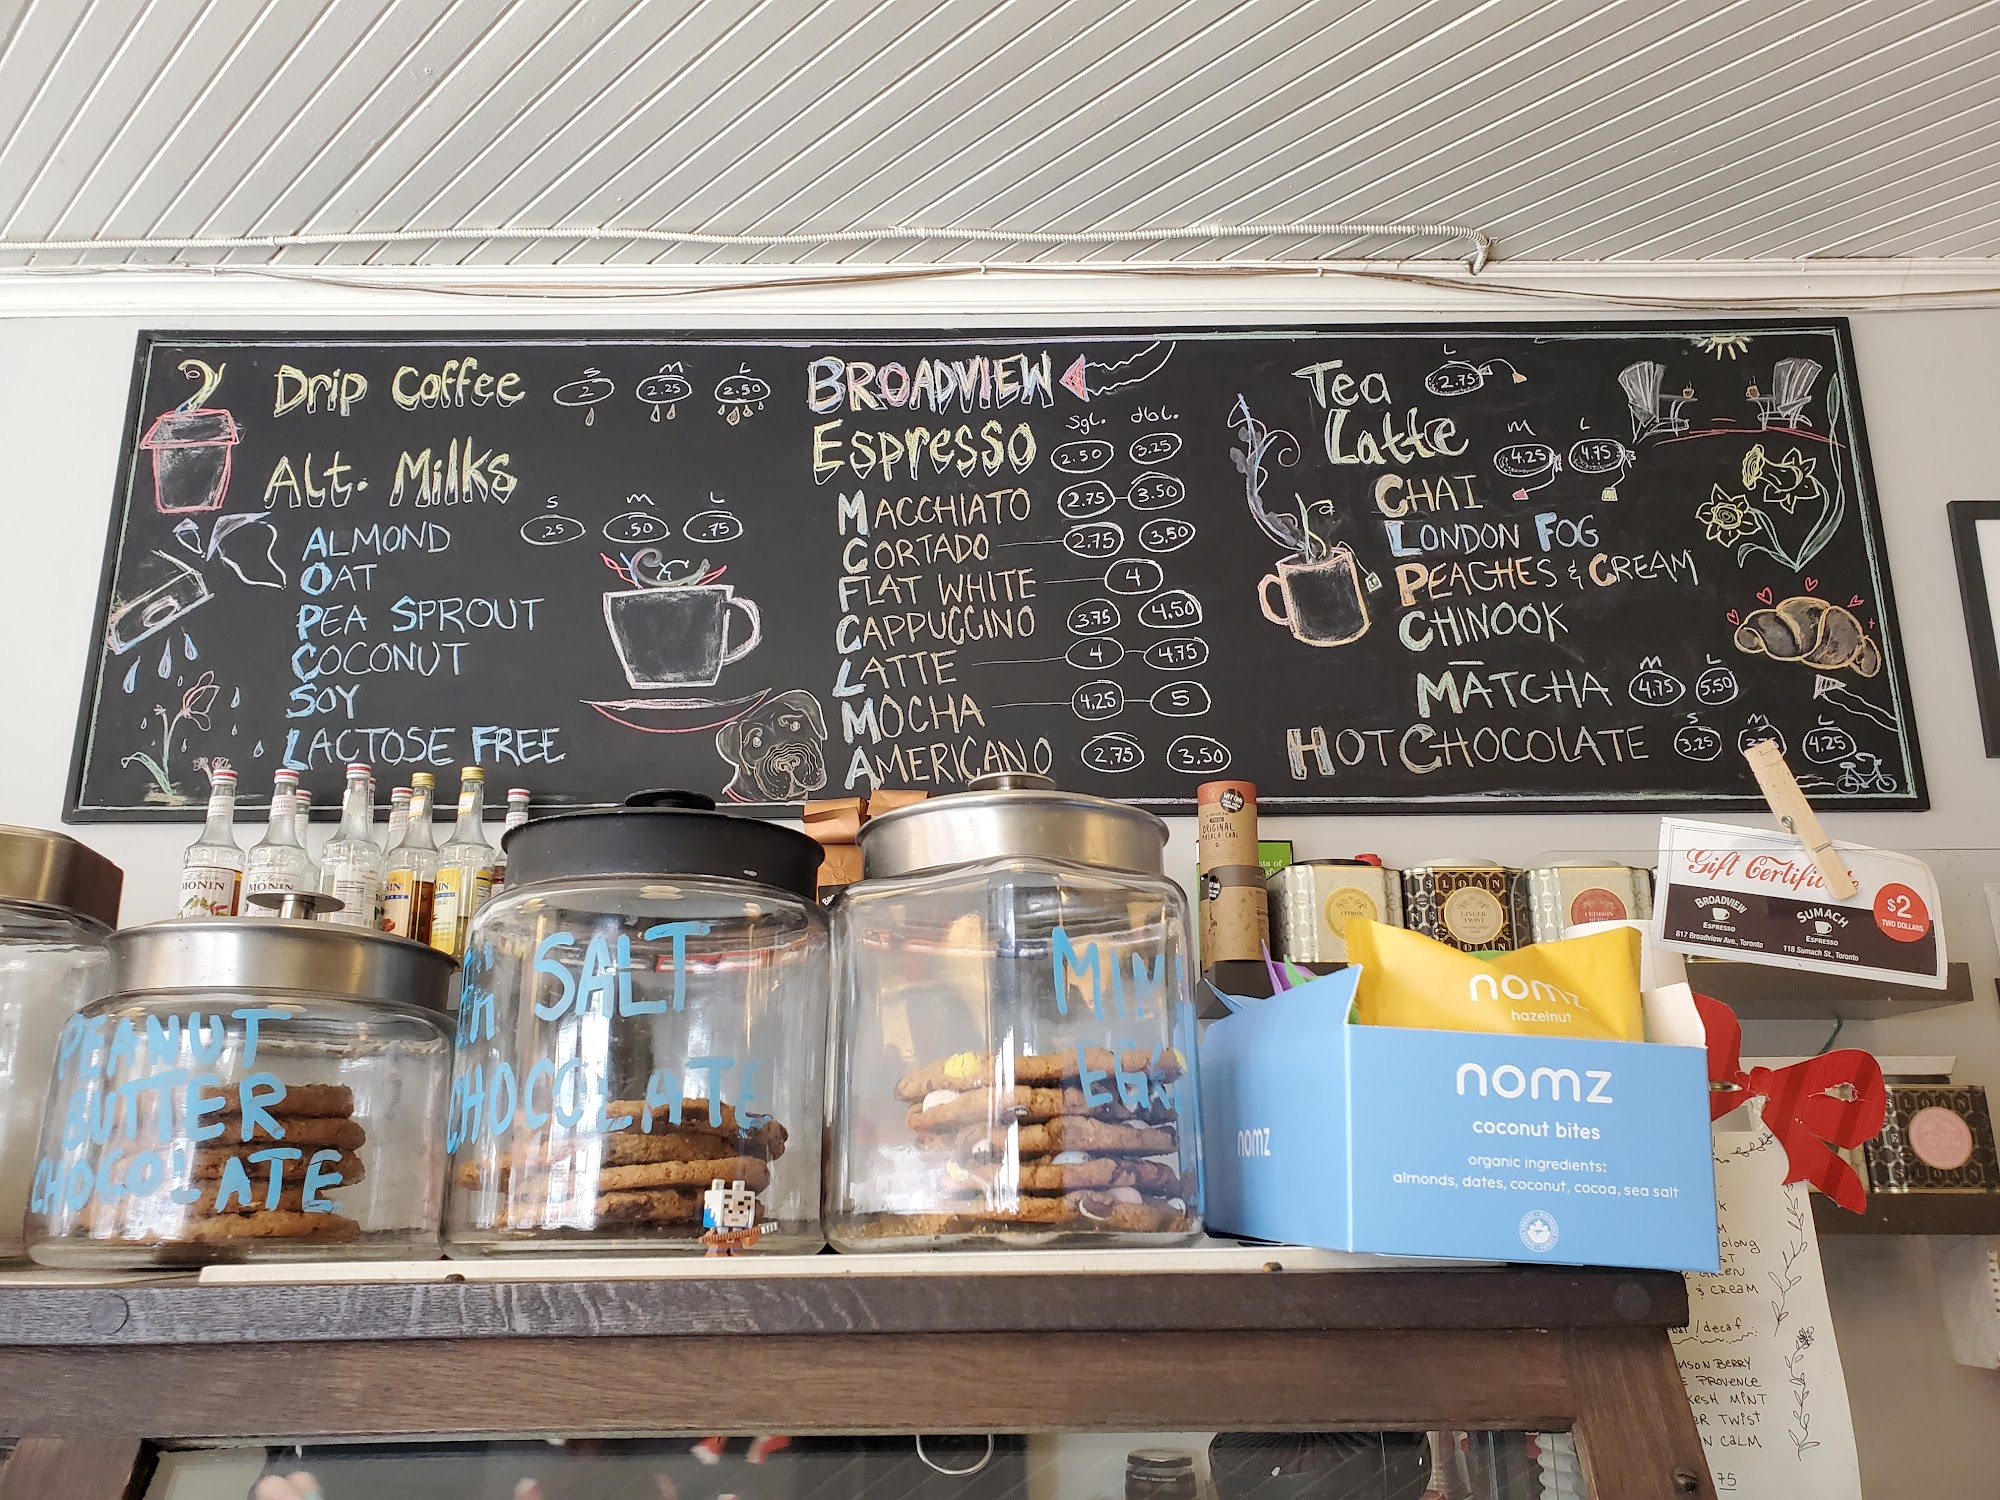 Drip Coffee S 2 M 2.25 L 2.50
Alt. Milks
S M L
ALMOND .25 .50 .75
OAT
PEA SPROUT
COCONUT
SOY
LACTOSE FREE
BROADVIEW
Sgl. dbl.
Espresso 2.50 3.25
MACCHIATO 2.75 3.50
CORTADO 2.75 3.50
FLAT WHITE 4
CAPPUCCINO 3.75 4.50
LATTE 4 4.75
MOCHA 4.25 5
AMERICANO 2.75 3.50
Tea L 2.75
Latte M 4.25 L 4.75
CHAI
LONDON FOG
PEACHES & CREAM
CHINOOK
MATCHA M 4.75 L 5.50
HOT CHOCOLATE S 3.25 M L 4.25
MONIN
MONIN
PEANUT
BUTTER
CHOCOLATE
SALT
CHOCOLATE
MINI
EGG
ORIGINAL
MASALA CHAI
CITRON
SLOANE
GINGER
TWIST
CRIMSON
BERRY
Gift Certificate
BROADVIEW
ESPRESSO
817 Broadview Ave., Toronto
SUMACH
ESPRESSO
118 Sumach St., Toronto
$2
TWO DOLLARS
nomz
hazelnut
nomz
coconut bites
organic ingredients:
almonds, dates, coconut, cocoa, sea salt
nomz
SLOANE
GREEN
& CREAM
/decaf
BERRY
PROVENCE
MINT
TWIST
CALM
75